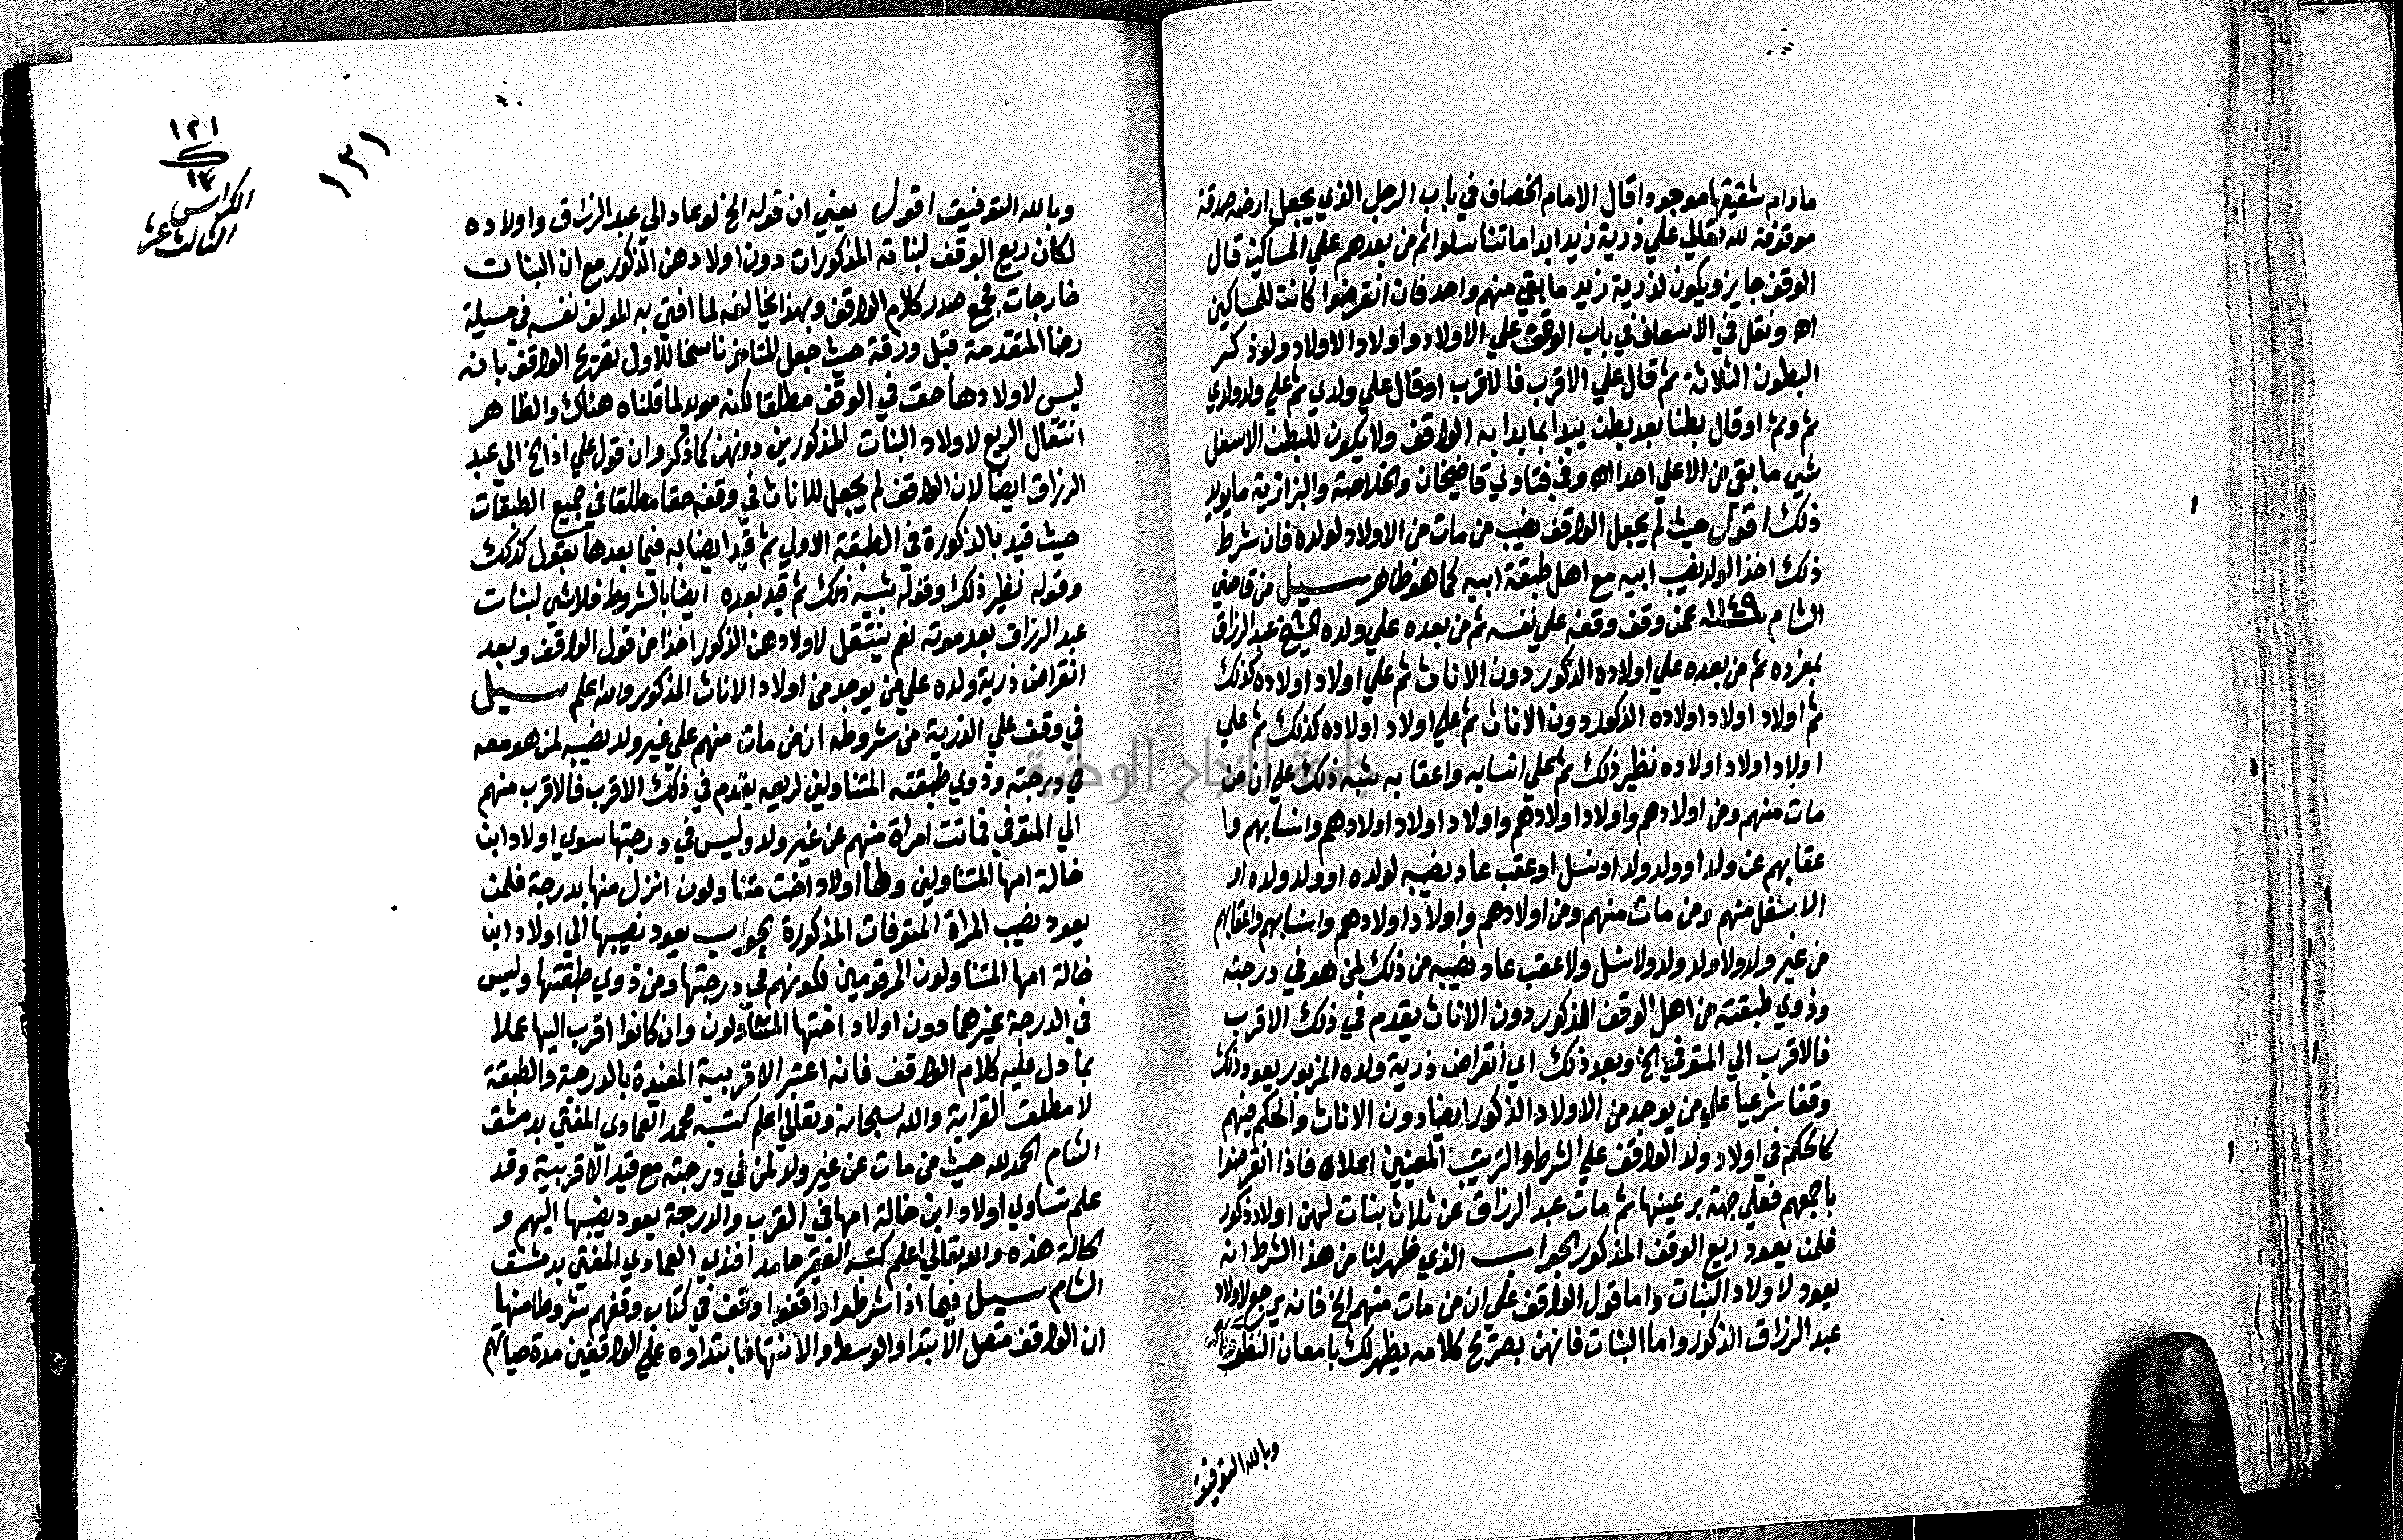 مادام شقيقها موجودا قال الامام الخصاف في باب الرجل الذي يجعل ارضه صدقة
موقوفة لله تعالي علي ذرية زيد ابدا ما تناسلوا ثم من بعدهم علي المساكين قال
الوقف جايز ويكون لذرية زيد ما بقي منهم واحد فان انقرضوا كانت للمساكين
اه ونقل في الاسعاف في باب الوقف علي الاولاد واولاد الاولاد ولو ذكر
البطون الثلاثة ثم قال علي الاقرب فالاقرب او قال علي ولدي ثم علي ولد ولدي
ثم وثم او قال بطنا بعد بطن يبدا بما بدا به الواقف ولا يكون للبطن الاسفل
شي ما بقي من الاعلي احد اه وفي فتاوي قاضيخان والخلاصة والبزازية ما يويد
ذلك اقول حيث لم يجعل الواقف نصيب من مات من الاولاد لولده فان شرط
ذلك اخذ الولد نصيب ابيه مع اهل طبقة ابيه كما هو ظاهر سيل من قاضي
الشام ١١٤٩ عمن وقف وقفه علي نفسه ثم من بعده علي ولده الشيخ عبد الرزاق
بمفرده ثم من بعده علي اولاده الذكور دون الاناث ثم علي اولاد اولاده كذلك
ثم اولاد اولاد اولاده الذكور دون الاناث ثم علي اولاد اولاده كذلك ثم علي
اولاد اولاد اولاده نظير ذلك ثم علي انسابه واعقابه شبه ذلك علي ان من
مات منهم ومن اولادهم واولاد اولادهم واولاد اولاد اولادهم وانسابهم وا
عقابهم عن ولد او ولد ولد او نسل او عقب عاد نصيبه لولده او ولد ولده او
الاسفل منهم ومن مات منهم ومن اولادهم واولاد اولادهم وانسابهم واعقابهم
من غير ولد ولا ولد ولد ولا نسل ولا عقب عاد نصيبه من ذلك لمن هو في درجته
وذوي طبقته من اهل الوقف الذكور دون الاناث يقدم في ذلك الاقرب
فالاقرب الي المتوفي الخ وبعد ذلك اي انقراض ذرية ولده المزبور يعود ذلك
وقفا شرعيا علي من يوجد من الاولاد الذكور ايضا دون الاناث والحكم فيهم
كالحكم في اولاد ولد الواقف علي الشرط والترتيب المعينين اعلاه فاذا انقرضوا
باجمعهم فعلي جهة بر عينها ثم مات عبد الرزاق عن ثلاث بنات لهن اولاد ذكور
فلمن يعود ريع الوقف المذكور الجواب الذي ظهر لنا من هذا الشرط انه
يعود لاولاد البنات واما قول الواقف علي ان من مات منهم الخ فانه يرجع لاولاد
عبد الرزاق الذكور واما البنات فانهن بصريح كلامه يظهر لك بامعان النظر
وبالله التوفيق
١٢١
ك
١٣
الكراس
الثالث عشر
١٢١
وبالله التوفيق اقول يعني ان قوله الخ لو عاد الى عبد الرزاق واولاده
لكان ريع الوقف لبناته المذكورات دون اولادهن الذكور مع ان البنات
خارجات بجميع صدر كلام الواقف وبهذا يخالفه لما افتي به المولف نفسه في مسيلة
رضا المتقدمة قبل ورقة حيث جعل المتاخر ناسخا للاول بقريخ الواقف بانه
ليس لاولادها حق في الوقف مطلقا لكنه مويد لما قلناه هناك والظاهر
انتقال الريع لاولاد البنات المذكورين دونهن كما ذكر وان قول علي اذا الخ الي عبد
الرزاق ايضا لان الواقف لم يجعل للاناث في وقفه حقا مطلقا في جميع الطبقات
حيث قيد بالذكورة في الطبقة الاولي ثم قيد ايضا به فيما بعدها بقول كذلك
وقوله نظير ذلك وقوله شبه ذلك ثم قيد بعده ايضا بالشروط فلا شي لبنات
عبد الرزاق بعد موته نعم ينتقل لاولادهن الذكور اخذا من قول الواقف وبعد
انقراض ذرية ولده علي من يوجد من اولاد الاناث المذكور والله اعلم سيل
في وقف علي الذرية من شروطه ان من مات منهم علي غير ولد نصيبه لمن هو معه
في درجته وذوي طبقته المتناولين لريعه يقدم في ذلك الاقرب فالاقرب منهم
الي المتوفي فماتت امراة منهم عن غير ولد وليس في درجتها سوي اولاد ابن
خالة امها المتناولين ولها اولاد اخت متناولون انزل منها بدرجة فلمن
يعود نصيب المراة المتوفات المذكورة الجواب يعود نصيبها الي اولاد ابن
خالة امها المتناولون المرقومين لكونهم في درجتها ومن ذوي طبقتها وليس
في الدرجة غيرهما دون اولاد اختها المتناولون وان كانوا اقرب اليها عملا
بما دل عليه كلام الواقف فانه اعتبر الاقربية المقيدة بالدرجة والطبقة
لا مطلق القرابة والله سبحانه وتعالي اعلم كتبه محمد العمادي المفتي بدمشق
الشام الحمد لله حيث من مات عن غير ولد لمن في درجته مع قيد الاقربية وقد
علم تساوي اولاد ابن خالة امها في القرب والدرجة يعود نصيبها اليهم و
الحالة هذه والله تعالي اعلم كتبه الفقير حامد افندي العمادي المفتي بدمشق
الشام سيل فيما اذا شرطوا واقفوا وقف في كتاب وقفهم شروطا منها
ان الوقف متصل الابتدا والوسط والانتها فابتداوه علي الواقفين مدة حياتهم